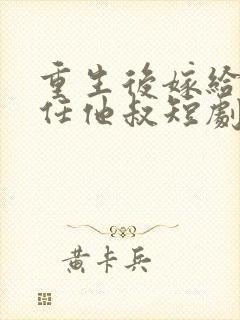 重生後嫁給
任他叔短劇
黃卡兵